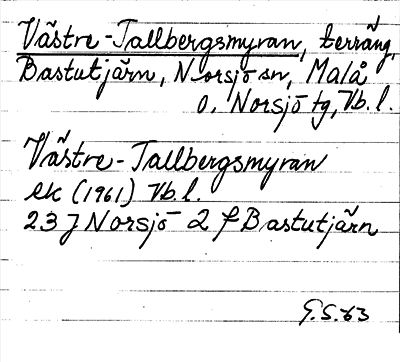 Västre-Tallbergsmyran, terräng,
Bastutjärn, Norsjö sn, Malå
o. Norsjö tg, Vb. l.
Västre-Tallbergsmyran
ek (1961) Vb. l.
23 J Norsjö 2 f Bastutjärn
G.S. 63